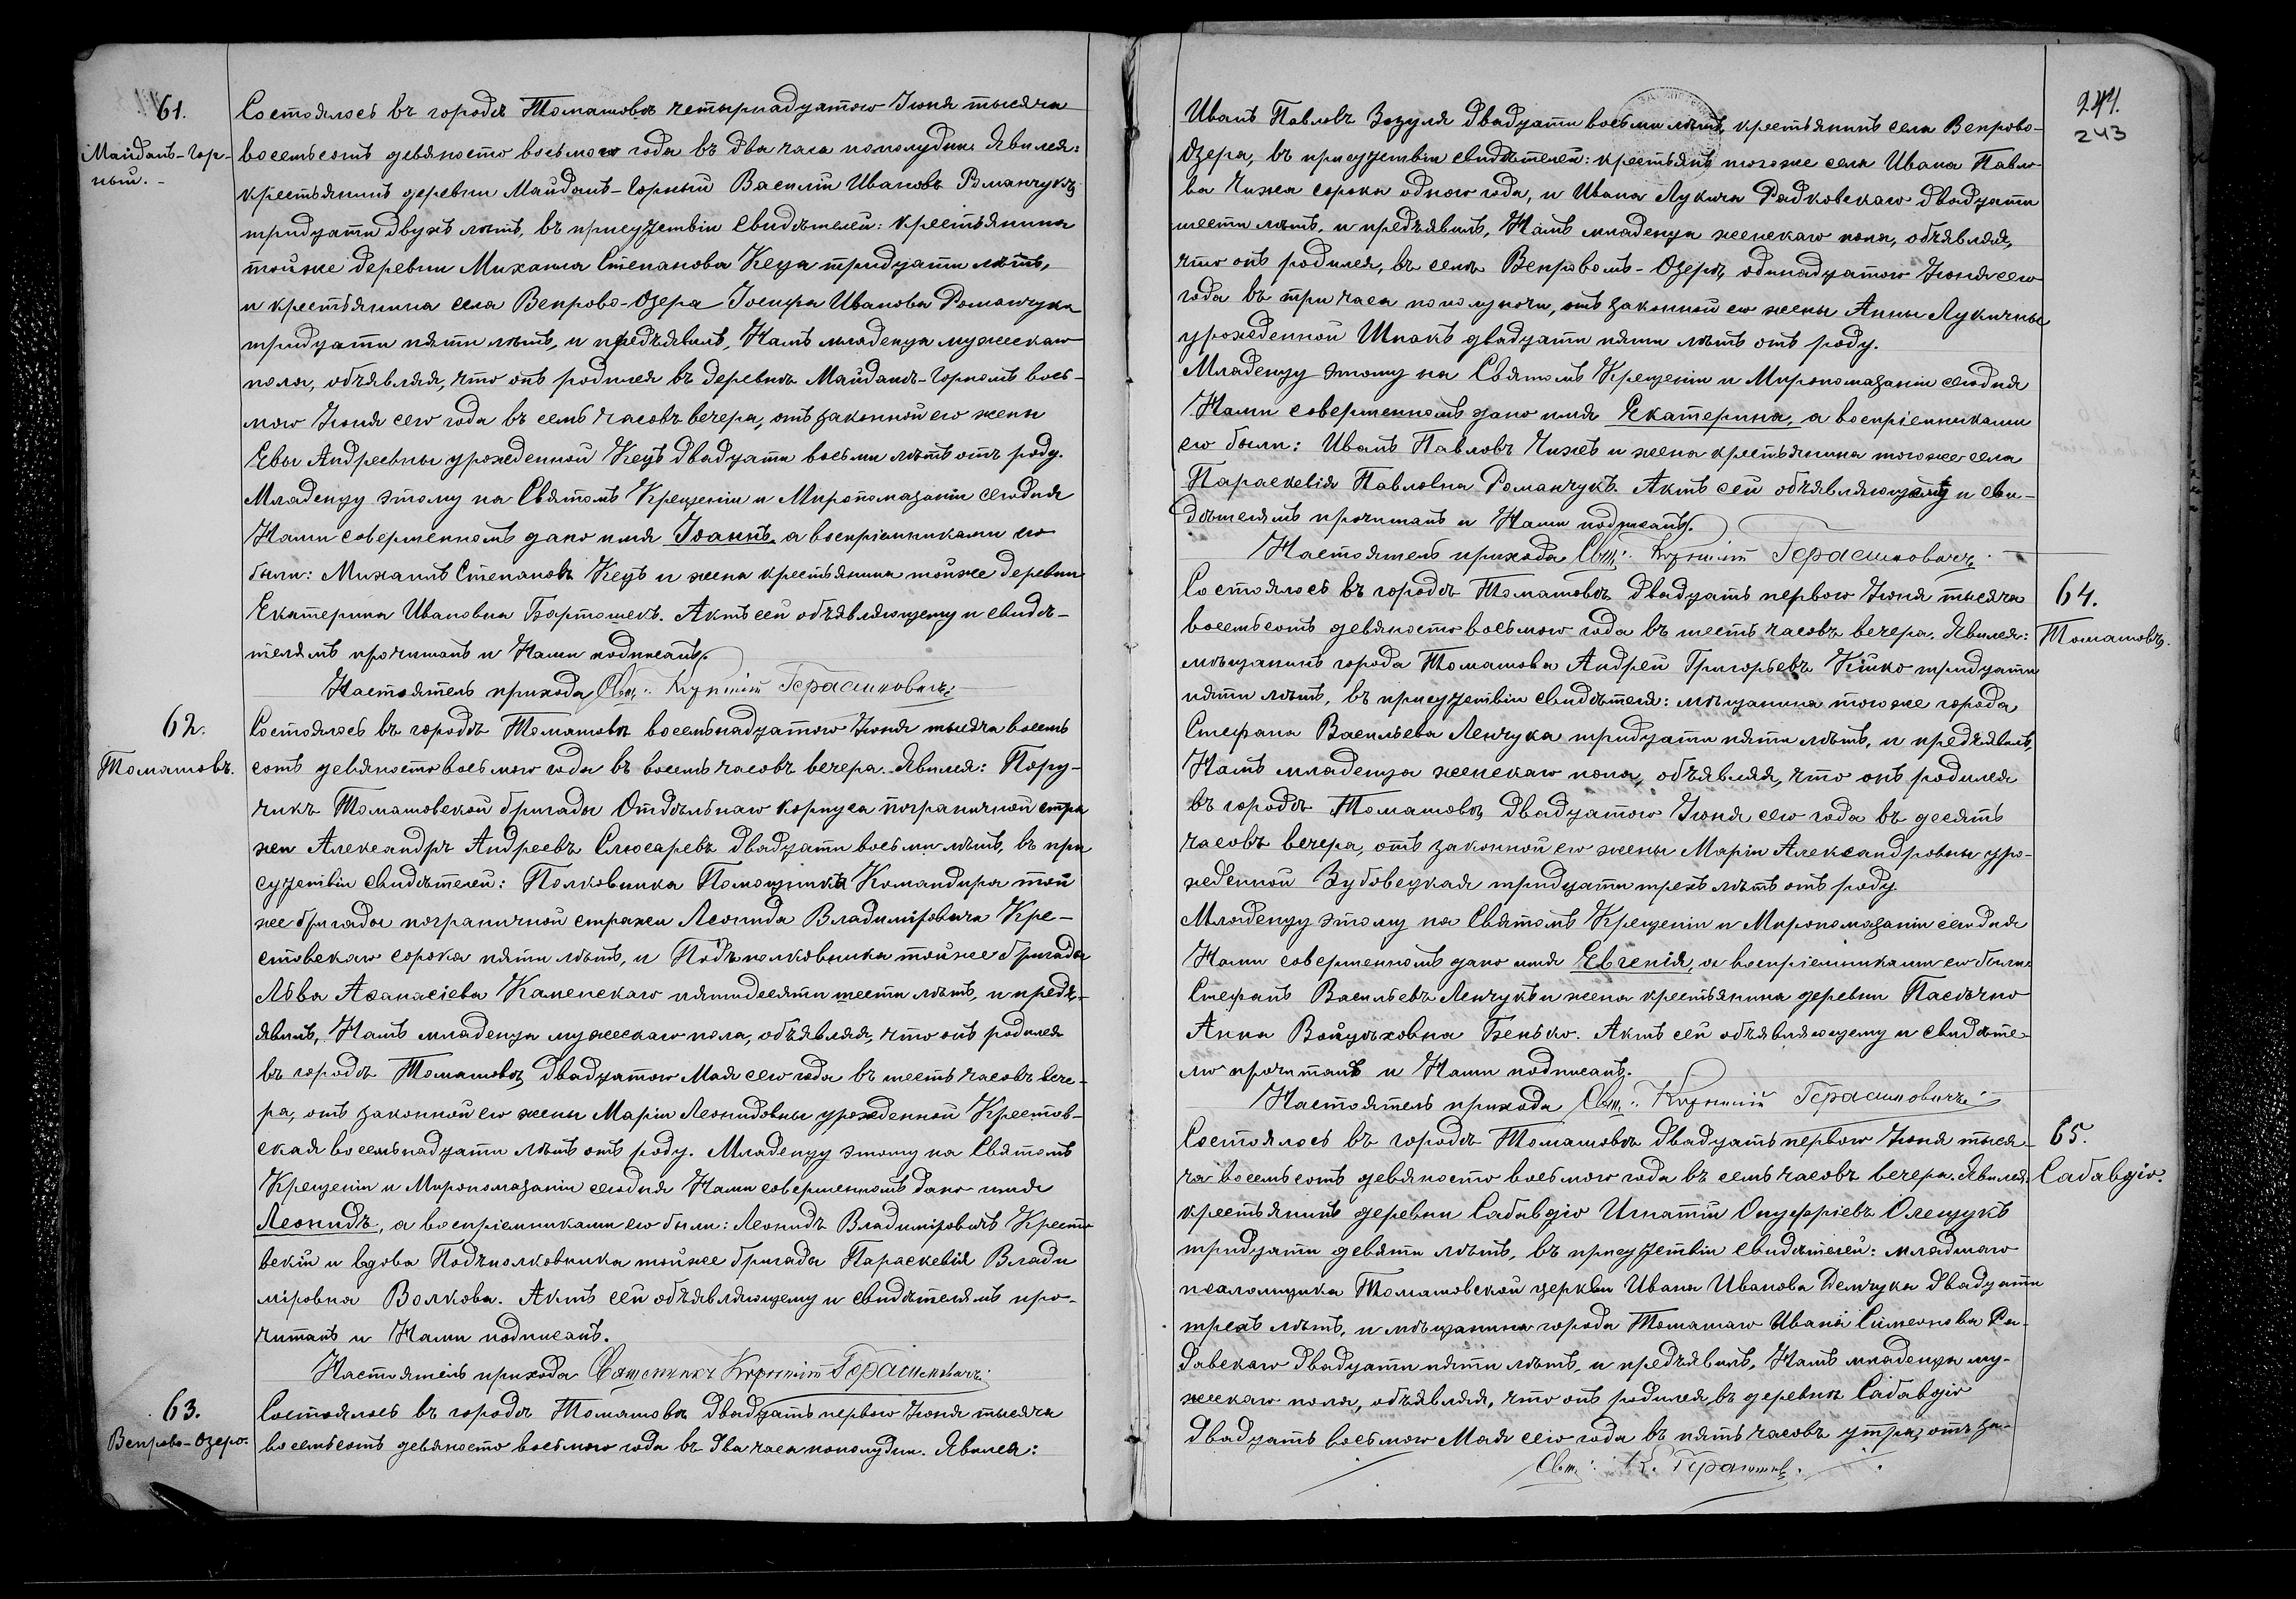 61.
Майданъ-Гор-
ный.
Состоялось въ городѣ Томашовѣ четырнадцатого Іюня тысяча
восемьсотъ девяносто восьмого года въ два часа пополудни. Явился:
крестьянинъ деревни Майданъ-Горный Василій Ивановъ Романчукъ
тридцати двухъ лѣтъ, въ присутствіи свидѣтелей: крестьянина
тойже деревни Михаила Степанова Кеца тридцати лѣтъ,
и крестьянина села Вепрово-Озера Іосифа Иванова Романчука
тридцати пяти лѣтъ, и предъявилъ, Намъ младенца мужескаго
пола, объявляя, что онъ родился въ деревнѣ Майданѣ-Горномъ вось-
мого Іюня сего года въ семь часовъ вечера, отъ законной его жены
Евы Андреевны урожденной Кецъ двадцати восьми лѣтъ отъ роду.
Младенцу этому на Святомъ Крещеніи и Миропомазаніи сегодня
Нами совершенномъ дано имя Іоаннъ, а воспріемниками его
были: Михаилъ Степановъ Кецъ и жена крестьянина тойже деревни
Екатерина Ивановна Бартошекъ. Актъ сей объявляющему и свидѣ-
телямъ прочитанъ и Нами подписанъ.
Настоятель прихода Свящ: Курилій Герасимовичъ
62.
Томашовъ.
Состоялось въ городѣ Томашовѣ восемьнадцатого Іюня тысяча восемь
сотъ девяносто восьмого года въ восемь часовъ вечера. Явился: Пору-
чикъ Томашовской бригады Отдѣльнаго корпуса пограничной стра
жи Александръ Андреевъ Слюсаревъ двадцати восьми лѣтъ, въ при
сутствіи свидѣтелей: Полковника Помощника Командира той
же бригады пограничной стражи Леонида Владиміровича Кре-
стовскаго сорока пяти лѣтъ, и Подъполковника тойже бригады
Льва Аѳанасіева Каменскаго пятидесяти шести лѣтъ, и предъ-
явилъ, Намъ младенца мужескаго пола, объявляя, что онъ родился
въ городѣ Томашовѣ двадцатого Мая сего года въ шесть часовъ вече-
ра, отъ законной его жены Маріи Леонидовны урожденной Крестов-
ская восемьнадцати лѣтъ отъ роду. Младенцу этому на Святомъ
Крещеніи и Миропомазаніи сегодня Нами совершенномъ дано имя
Леонидъ, а воспріемниками его были: Леонидъ Владиміровичъ Кресто
вскій и вдова Подъполковника тойже бригады Параскевія Влади
міровна Волкова. Актъ сей объявляющему и свидѣтелямъ про-
читанъ и Нами подписанъ.
Настоятель прихода Священникъ Герасимовичъ
63.
Вепрово-Озеро.
Состоялось въ городѣ Томашовѣ двадцать первого Іюня тысяча
восемьсотъ девяносто восьмого года въ два часа пополудни. Явился:
244.
243
Иванъ Павловъ Зозуля двадцати восьми лѣтъ, крестьянинъ села Вепрово-
Озера, въ присутствіи свидѣтелей: крестьянъ тогоже села Ивана Павло-
ва Чижа сорока одного года, и Ивана Лукича Радковскаго двадцати
шести лѣтъ, и предъявилъ, Намъ младенца женскаго пола, объявляя,
что онъ родился, въ селѣ Вепровомъ-Озерѣ, одинадцатого Іюня сего
года въ три часа пополуночи, отъ законной его жены Анны Лукичны
урожденной Шпакъ двадцати пяти лѣтъ отъ роду.
Младенцу этому на Святомъ Крещеніи и Миропомазаніи сегодня
Нами совершенномъ дано имя Екатерина, а воспріемниками
его были: Иванъ Павловъ Чижъ и жена крестьянина тогоже села
Параскевія Павловна Романчукъ. Актъ сей объявляющему и сви-
дѣтелямъ прочитанъ и Нами подписанъ.
Настоятель прихода Свящ: Герасимовичъ
64.
Томашовъ.
Состоялось въ городѣ Томашовѣ двадцать первого Іюня тысяча
восемьсотъ девяносто восьмого года въ шесть часовъ вечера. Явился:
мѣщанинъ города Томашова Андрей Григорьевъ Кійко тридцати
пяти лѣтъ, въ присутствіи свидѣтеля: мѣщанина тогоже города
Стефана Васильева Ленчука тридцати пяти лѣтъ, и предъявилъ,
Намъ младенца женскаго пола, объявляя, что онъ родился
въ городѣ Томашовѣ двадцатого Іюня сего года въ десять
часовъ вечера, отъ законной его жены Маріи Александровны уро-
жденной Зубовецкая тридцати трехъ лѣтъ отъ роду.
Младенцу этому на Святомъ Крещеніи и Миропомазаніи сегодня
Нами совершенномъ дано имя Евгенія, а воспріемниками его были
Стефанъ Васильевъ Ленчукъ и жена крестьянина деревни Пасѣчно
Анна Войцѣховна Бенько. Актъ сей объявляющему и свидѣте-
лю прочитанъ и Нами подписанъ.
Настоятель прихода Свящ: Герасимовичъ
65.
Сабавдіо.
Состоялось въ городѣ Томашовѣ двадцать первого Іюня тыся-
ча восемьсотъ девяносто восьмого года въ семь часовъ вечера. Явился:
крестьянинъ деревни Сабавдіо Игнатій Онуфріевъ Олещукъ
тридцати девяти лѣтъ, въ присутствіи свидѣтелей: младшаго
псаломщика Томашовской церкви Ивана Иванова Демчука двадцати
трехъ лѣтъ, и мѣщанина города Томашова Ивана Симеонова Са-
давскаго двадцати пяти лѣтъ, и предъявилъ, Намъ младенца му-
жескаго пола, объявляя, что онъ родился, въ деревнѣ Сабавдіо
двадцать восьмого Мая сего года въ пять часовъ утра, отъ за-
Свящ: К. Герасимов.